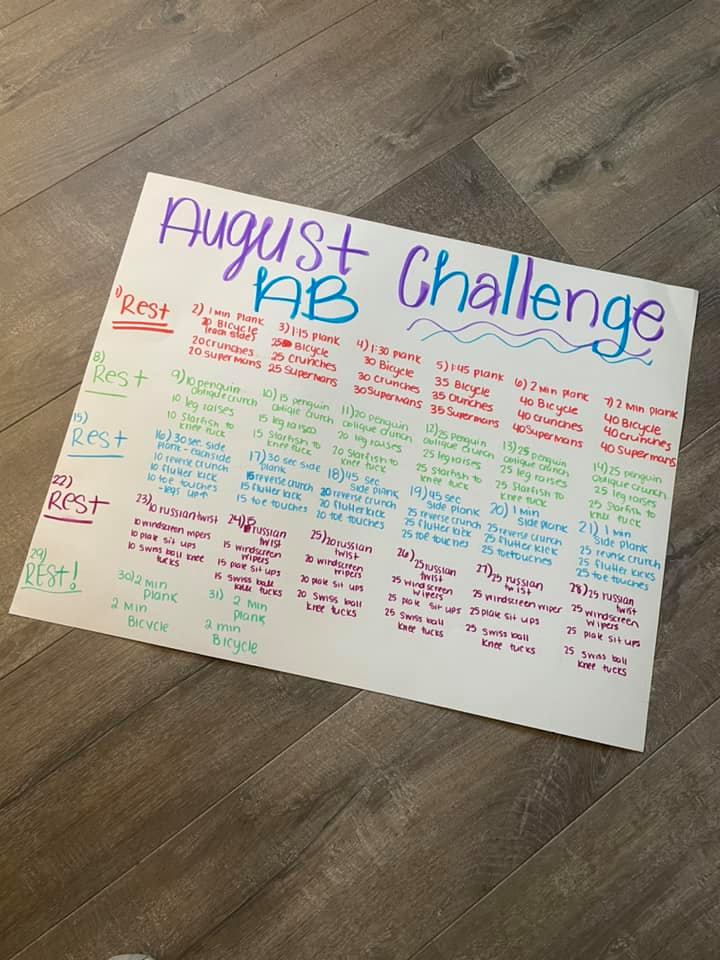 August Challenge
AB
1) Rest
2) 1 Min plank
20 Bicycle
(each side)
20 crunches
20 Supermans
3) 1:15 plank
25 Bicycle
25 Crunches
25 Supermans
4) 1:30 plank
30 Bicycle
30 Crunches
30 Supermans
5) 1:45 plank
35 Bicycle
35 Crunches
35 Supermans
6) 2 Min plank
40 Bicycle
40 crunches
40 Supermans
7) 2 Min plank
40 Bicycle
40 crunches
40 Supermans
8)
Rest
9) 10 penguin
oblique crunch
10 leg raises
10 Starfish to
knee tuck
10) 15 penguin
obliqie crunch
15 leg raises
15 Starfish to
knee tuck
11) 20 Penguin
oblique crunch
20 leg raises
20 Starfish to
knee tuck
12) 25 penguin
oblique crunch
25 leg raises
25 Starfish to
knee tuck
13) 25 penguin
oblique crunch
25 leg raises
25 Starfish to
knee tuck
14) 25 penguin
Oblique crunch
25 leg raises
25 Starfish to
knee tuck
15)
Rest
16) 30 sec. side
plank - each side
10 reverse crunch
10 flutter kick
10 toe touches
- legs up ↑
17) 30 sec side
plank
15 reverse crunch
15 flutter kick
15 toe touches
18) 45 sec
Side plank
20 reverse crunch
20 flutter kick
20 toe touches
19) 45 sec
Side plank
25 reverse crunch
25 flutter kick
25 toe touches
20) 1 Min
Side plank
25 reverse crunch
25 flutter kick
25 toe touches
21) 1 Min
Side plank
25 reverse crunch
25 flutter kicks
25 toe touches
22)
Rest
23) 10 russian twist
10 windscreen wipers
10 plate sit ups
10 Swiss ball knee
tucks
24) 15 russian
twist
15 windscreen
wipers
15 plate sit ups
15 Swiss ball
knee tucks
25) 20 russian
twist
20 windscreen
wipers
20 plate sit ups
20 Swiss ball
knee tucks
26) 25 russian
twist
25 windscreen
wipers
25 plate sit ups
25 Swiss ball
knee tucks
27) 25 russian
twist
25 windscreen wiper
25 plate sit ups
25 Swiss ball
knee tucks
28) 25 russian
twist
25 windscreen
wipers
25 plate sit ups
25 Swiss ball
knee tucks
29)
REST!
30) 2 min
Plank
2 Min
Bicycle
31) 2 Min
Plank
2 min
Bicycle